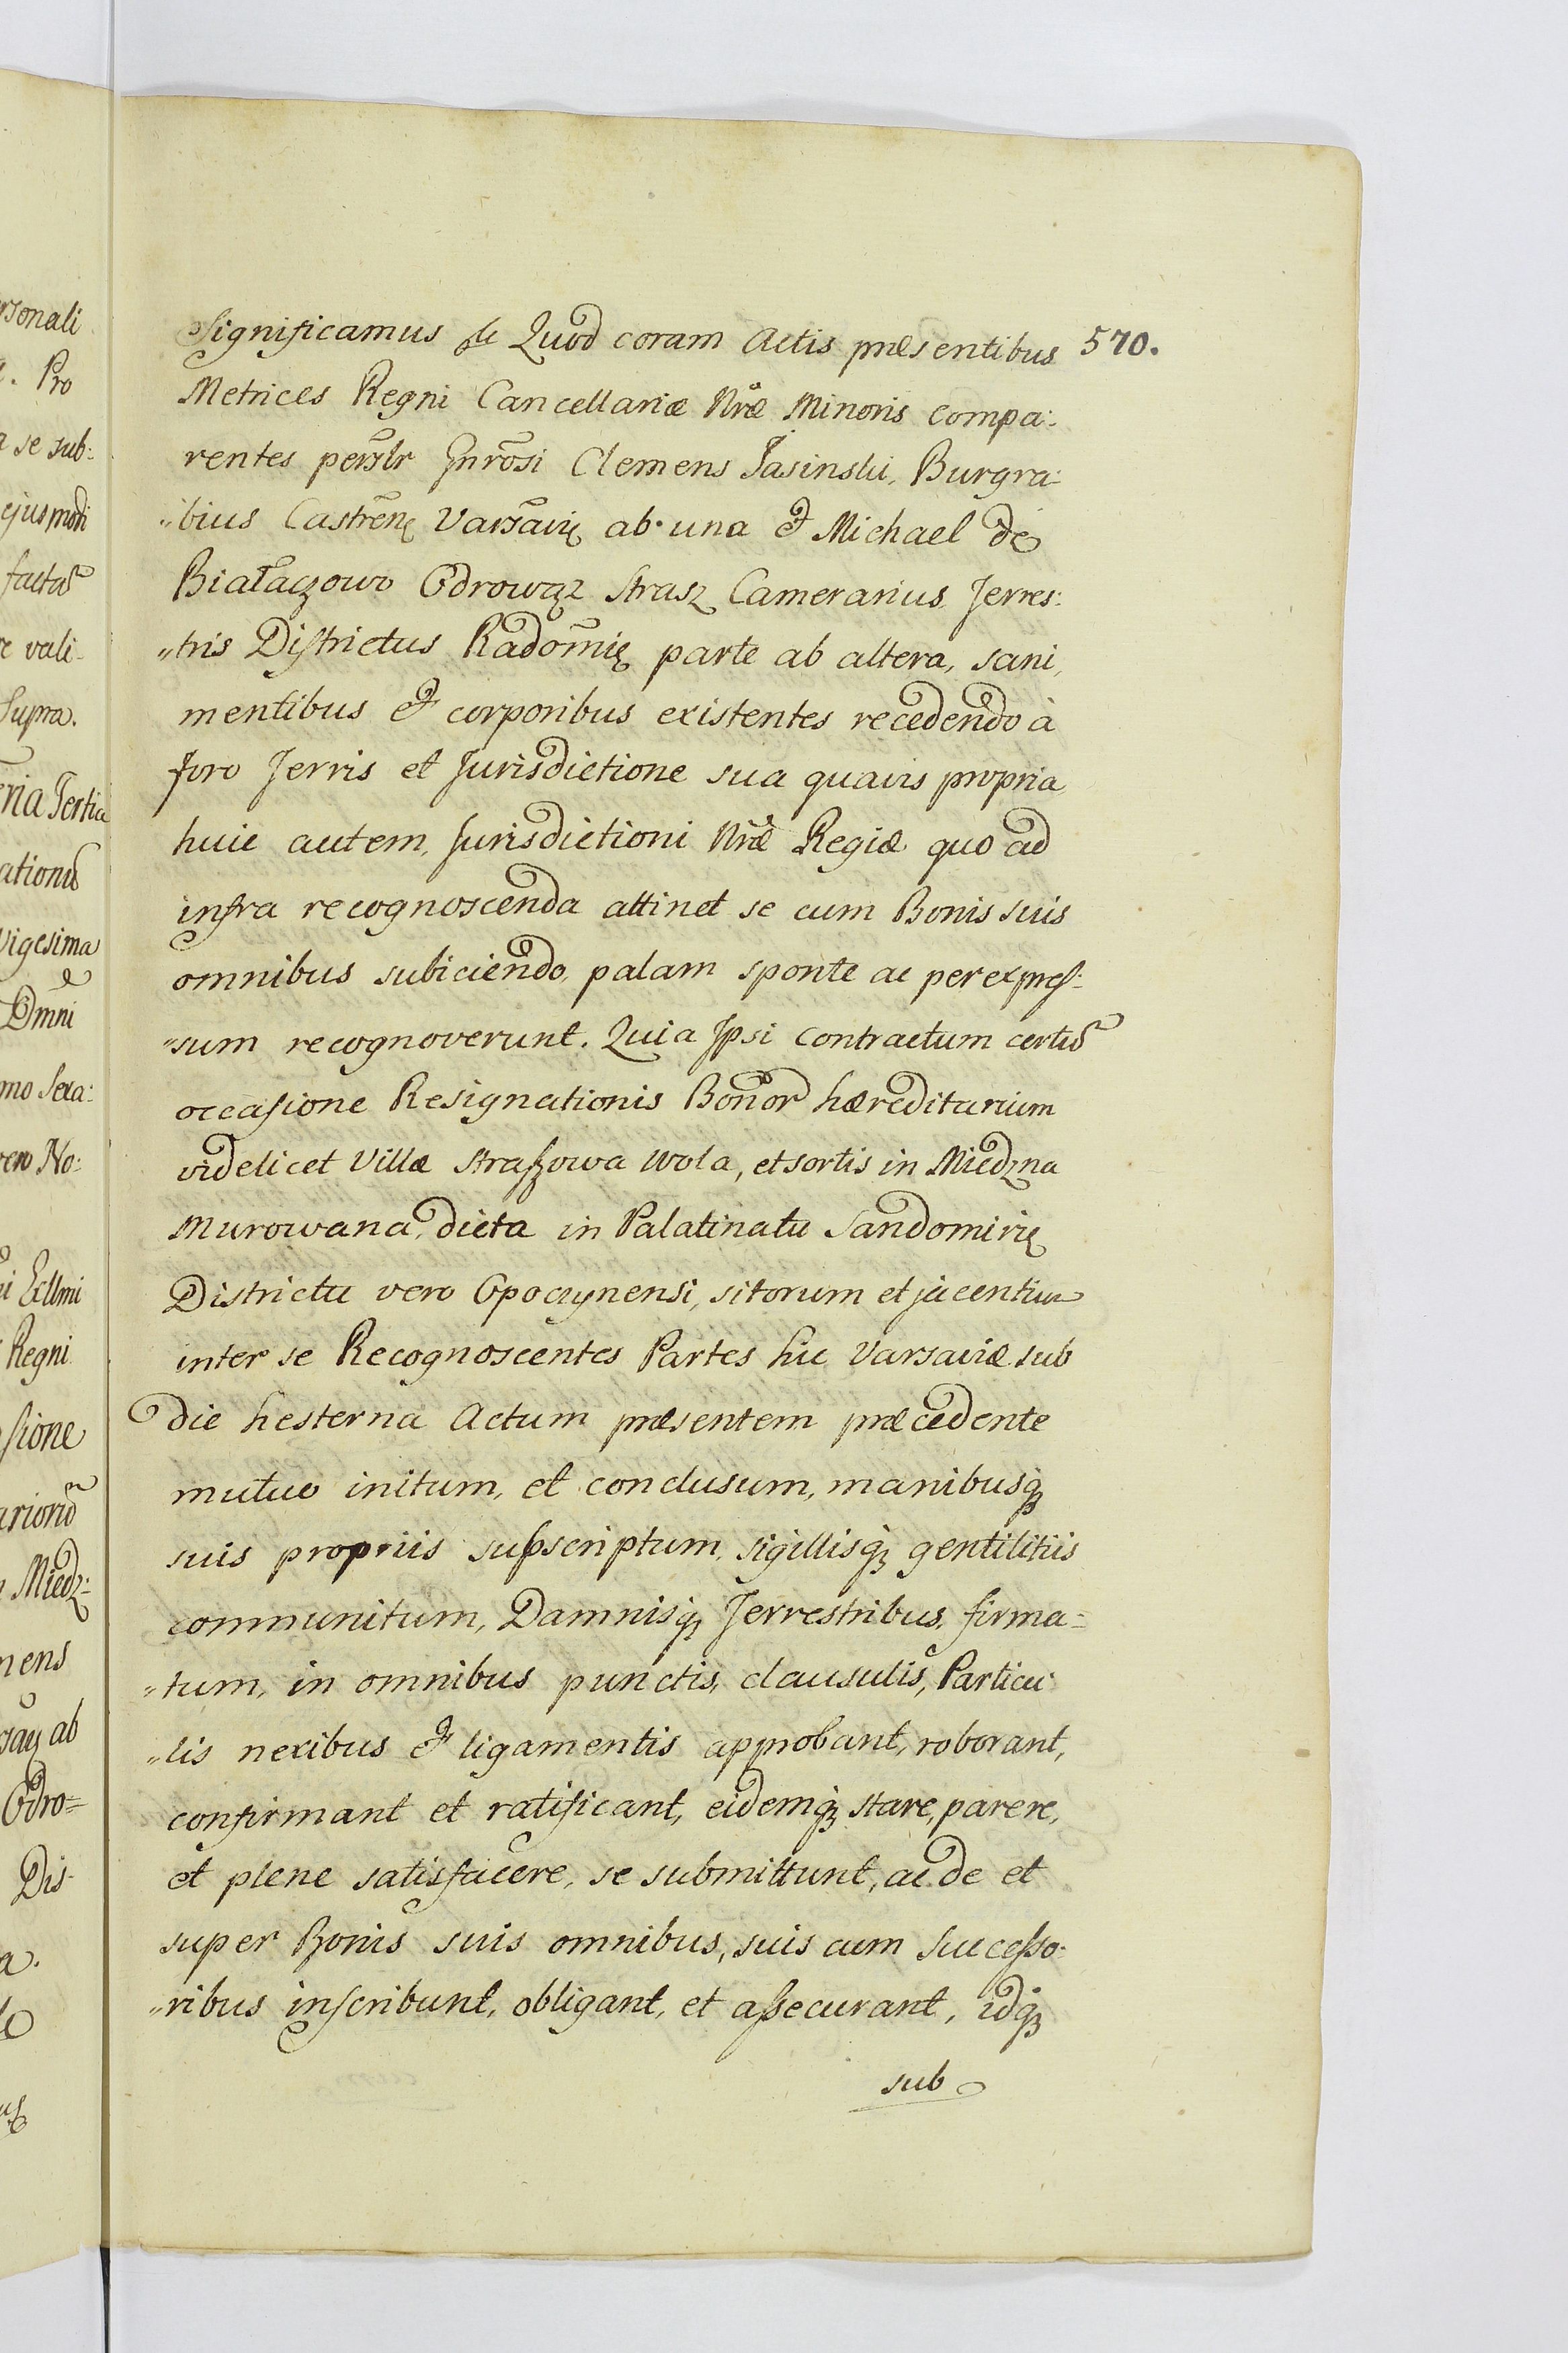 Significamus &c Quod coram Actis præsentibus 570.
Metrices Regni Cancellariæ Nræ Minoris compa:
rentes persłr Gnrosi Clemens Jasinski, Burgra:
„bius Castreñ Varsavię ab una & Michael de
Białaczowo Odrowąz Strasz Camerarius Terres:
„tris Districtus Radomię parte ab altera, sani,
mentibus & corporibus existentes recedendo à
foro Terris et Jurisdictione sua quavis propria
huic autem, Jurisdictioni Nræ Regiæ quo ad
infra recognoscenda attinet se cum Bonis suis
omnibus subiciendo, palam sponte ac per expres:
„sum recognoverunt. Quia Ipsi contractum certũ
occasione Resignationis Bonor̃ hæreditarium
videlicet Villæ Straszowa Wola, et sortis in Miedzna
Murowana, dicta in Palatinatu Sandomirię
Districtu vero Opoczynensi, sitorum et jacentium
inter se Recognoscentes Partes hic Varsaviæ sub
die hesterna Actum præsentem præcedente
mutuo initum, et conclusum, manibusq́
suis propriis subscriptum, sigillisq́ gentilitiis
communitum, Damnisq́ Terrestribus, firma:
„tum, in omnibus punctis, clausulis, Particu:
„lis nexibus & ligamentis approbant, roborant,
confirmant et ratificant, eidemq́ stare, parere,
et plene satisfacere, se submittunt, ac de et
super Bonis suis omnibus, suis cum Successo:
„ribus inscribunt, obligant, et assecurant, idq́
sub